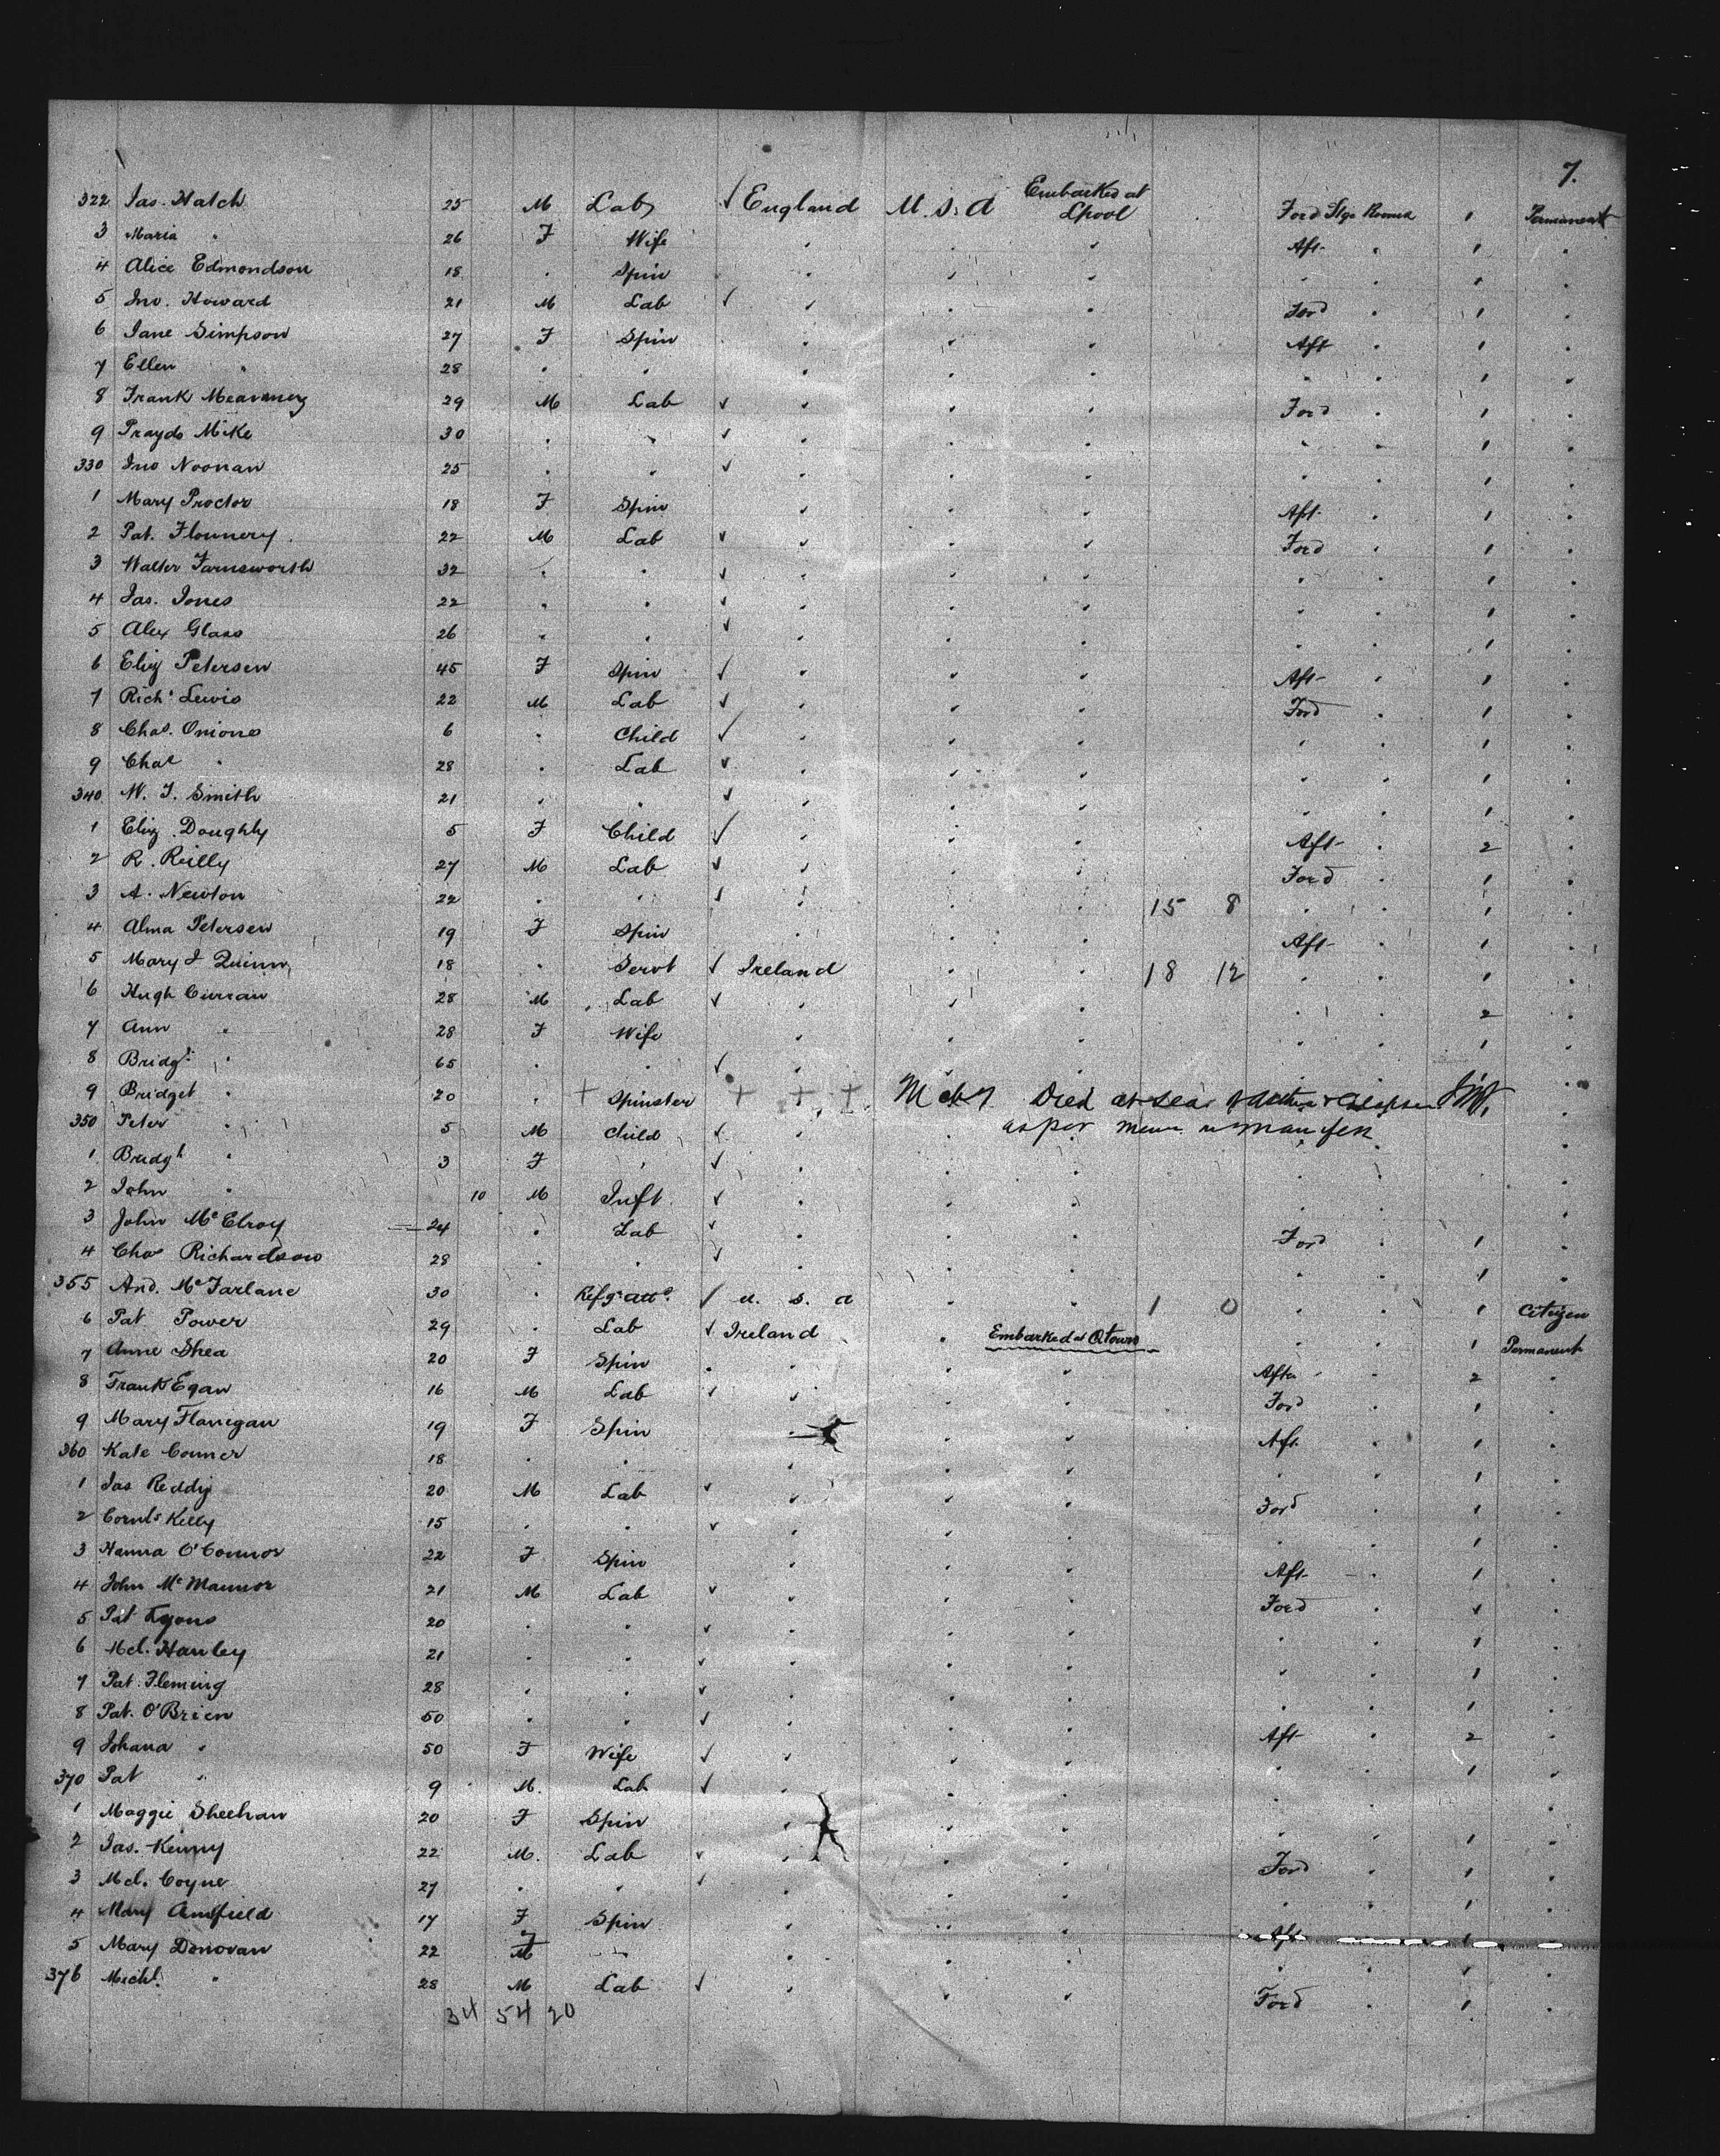 7.
322 Jas. Hatch 25 M Lab ✓ England U.S.A Embarked at Lpool Ford Stge 1 Permanent
3 Maria " 26 F Wife Aft 1
4 Alice Edmondson 18 Spin 1
5 Jno. Howard 21 M Lab ✓ Ford 1
6 Jane Simpson 27 F Spin Aft 1
7 Ellen " 28 1
8 Frank 29 M Lab ✓ Ford 1
9 Mike 30 ✓ 1
330 Jno Noonan 25 ✓ 1
1 Mary Proctor 18 F Spin Aft 1
2 Pat. Flounery 22 M Lab ✓ Ford 1
3 Walter Farnsworth 32 ✓ 1
4 Jas. Jones 22 ✓ 1
5 Alex Glass 26 ✓ 1
6 Eliz Petersen 45 F Spin ✓ Aft 1
7 Richd Lewis 22 M Lab ✓ Ford 1
8 Chas. Onions 6 Child ✓ 1
9 Chas " 28 Lab ✓ 1
340 W. J. Smith 21 ✓ 1
1 Eliz. Doughty 5 F Child ✓ Aft 2
2 R. Reilly 27 M Lab ✓ Ford 1
3 A. Newton 22 ✓ 15 8 1
4 Alma Petersen 19 F Spin Aft 1
5 Mary J Quinn 18 Servt ✓ Ireland 18 12 1
6 Hugh Curran 28 M Lab ✓ 2
7 Ann " 28 F Wife 1
8 Bridgt " 65 ✓
9 Bridget " 20 + Spinster + + + Mch 7 Died at sea
350 Peter " 5 M Child ✓ as per
1 Bridgt " 3 F ✓
2 John " 10 M Inft ✓
3 John McElroy 24 Lab ✓ Ford 1
4 Chas Richardson 28 ✓ 1
355 And. McFarlane 30 ✓ U. S. A 1 0 1 Citizen
6 Pat Power 29 Lab ✓ Ireland Embarked at Qtown 1 Permanent
7 Anne Shea 20 F Spin Aft 2
8 Frank Egan 16 M Lab ✓ Ford 1
9 Mary Flanigan 19 F Spin Aft 1
360 Kate Conner 18 1
1 Jas Reddy 20 M Lab ✓ Ford 1
2 Cornls Kelly 15 ✓ 1
3 Hanna O'Connor 22 F Spin Aft 1
4 John 21 M Lab ✓ Ford 1
5 Pat Lyons 20 ✓ 1
6 Mcl. Hanley 21 ✓ 1
7 Pat. Fleming 28 ✓ 1
8 Pat. O'Brien 50 ✓ Aft 2
9 Johana " 50 F Wife ✓ 1
370 Pat " 9 M. Lab ✓
1 Maggie Sheehan 20 F Spin 1
2 Jas. Kenny 22 M. Lab ✓ Ford 1
3 Mcl. Coyne 27 ✓ 1
4 Mary 17 F Spin Aft 1
5 Mary Donovan 22 F 1
376 Michl. " 28 M Lab ✓ Ford 1
34 54 20